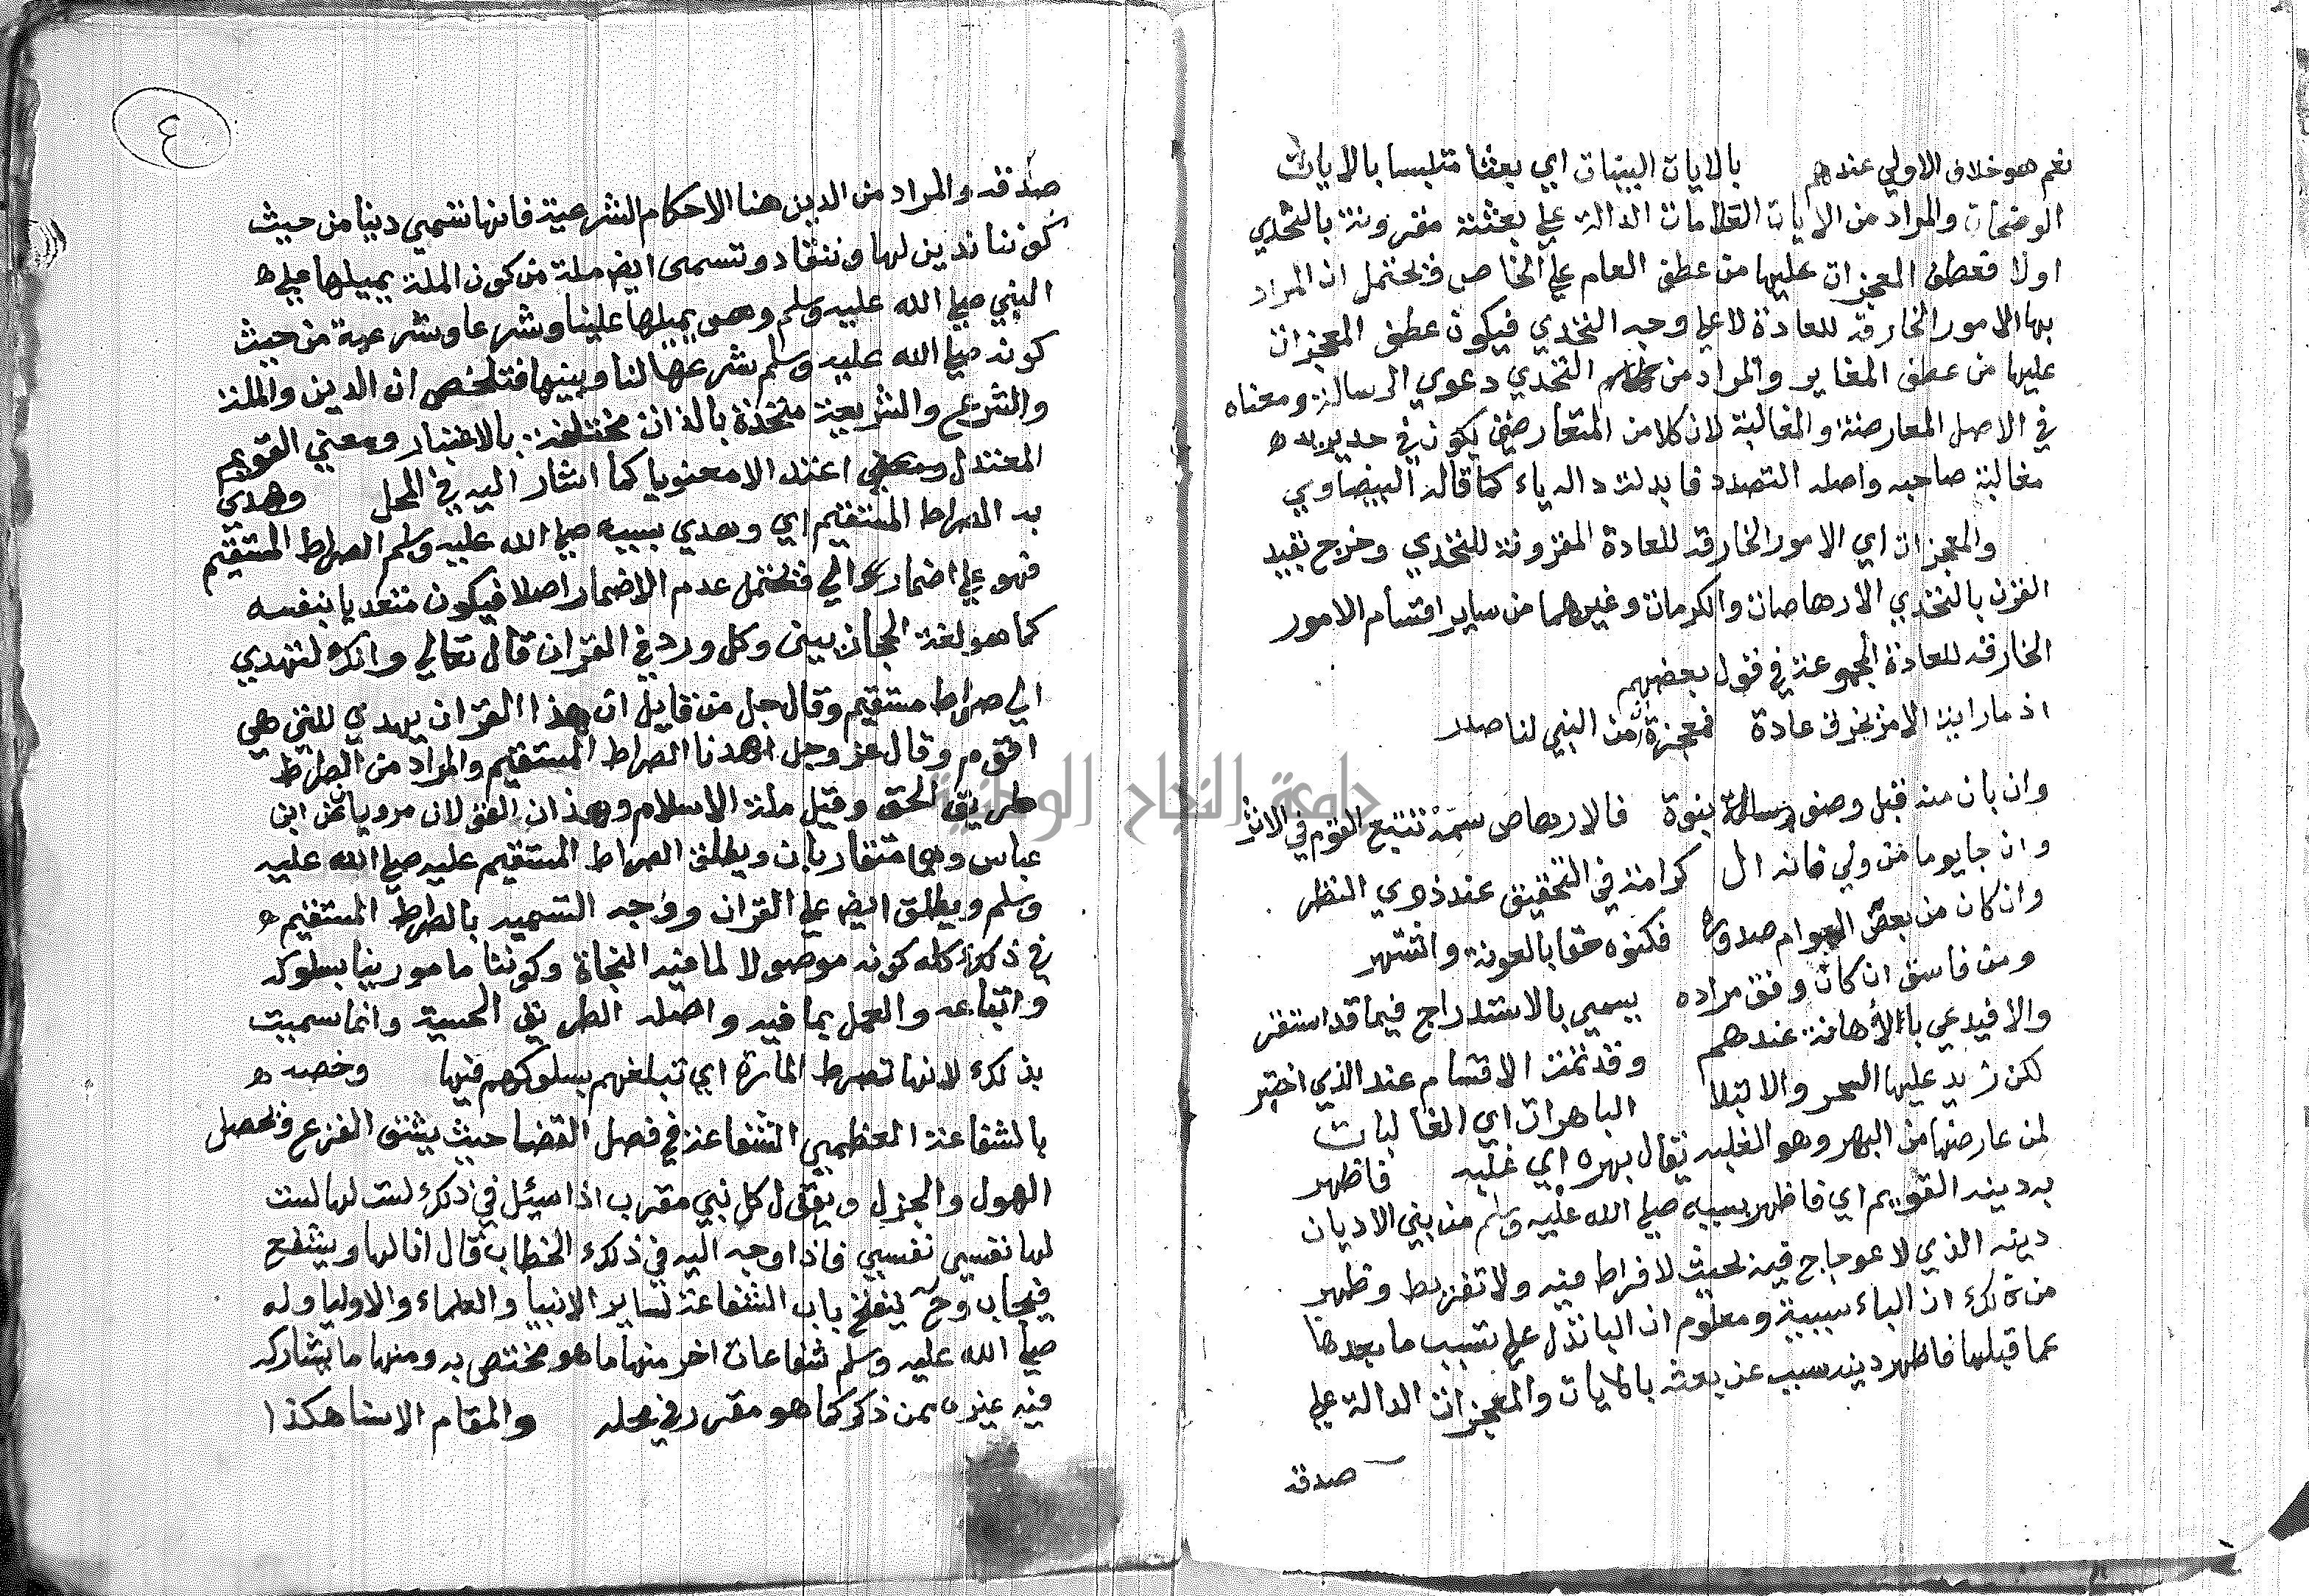 نعم هو خلاف الاولي عندهم بالايات البينات اي بعثا متلبسا بالايات
الوضحات والمراد من الايات العلامات الدالة علي بعثته مقرونة بالتحدي
اولا فعطف المعجزات عليها من عطف العام علي الخاص فيحتمل ان المراد
بها الامور الخارقه للعادة لا علي وجه التحدي فيكون عطف المعجزات
عليها من عطف المغاير والمراد من التحدي دعوي الرسالة ومعناه
في الاصل المعارضة والمغالبة لان كلا من المتعارضين يكون في حد يريد
مغالبة صاحبه واصله التصدد فابدلت داله ياء كما قاله البيضاوي
والمعجزات اي الامور الخارقه للعادة المقرونة للتحدي وخرج بقيد
القرن بالتحدي الارهاصات والكرمات وغيرهما من ساير اقسام الامور
الخارقه للعادة المجموعة في قول بعضهم
اذ ما رايت الامر يخرق عادة فمعجزة ان من النبي لنا صدر
وان بان منه قبل وصف رسالة بنوة فالارهاص سمه تتبع القوم في الاثر
وان جا يوما من ولي فانه ال كرامة في التحقيق عند ذوي النظر
وان كان من بعض العوام صدوره فكنوه حقا بالعونة واشتهر
ومن فاسق ان كان وفق مراده يسمي بالاستدراج فيما قد استقر
والا فيدعي بالاهانة عندهم وقد تمت الاقسام عند الذي اختبر
لكن زيد عليها السحر والابتلا الباهرات اي الغالبات
لمن عارضها من البهر وهو الغلبه يقال بهره اي غلبه فاظهر
به دينه القويم اي فاظهر بسببه صلي الله عليه وسلم من بين الاديان
دينه الذي لا عوجاج فيه بحيث لا فراط فيه ولا تفريط وظهر
من ذلك ان الباء سببية ومعلوم ان البا تدل علي تسبب ما بعدها
عما قبلها فاظهر دينه سبب عن بعثه بالايات والمعجزات الدالة علي
صدقه
٤
صدقه والمراد من الدين هنا الاحكام الشرعية فانها تسمي دينا من حيث
كوننا ندين لها وننقاد وتسمى ايض ملة من كون الملة يمليها علي
النبي صلي الله عليه وسلم وهو يمليها علينا وشرعا وشرعية من حيث
كونه صلي الله عليه وسلم شرعها لنا وبينها فتلخص ان الدين والملة
والشرع والشريعة متحدة بالذات مختلفة بالاعتبار ومعني القويم
المعتدل اعتدالا معنويا كما اشار اليه في المحل وهدي
به الصراط المستقيم اي وهدي بسببه صلي الله عليه وسلم الصراط المستقيم
فهو علي اضمار الي فيحتمل عدم الاضمار اصلا فيكون متعديا بنفسه
كما هو لغة الحجازيين وكل ورد في القران قال تعالي وانك لتهدي
الي صراط مستقيم وقال جل من قايل ان هذا القران يهدي للتي هي
اقوم وقال عز وجل اهدنا الصراط المستقيم والمراد من الصراط
طريق الحق وقيل ملة الاسلام وهذان القولان مرويان عن ابن
عباس وهما متقاربان ويطلق الصراط المستقيم عليه صلي الله عليه
وسلم ويطلق ايض علي القران ووجه التسميه بالصراط المستقيم
في ذلك كله كونه موصولا لما فيه النجاة وكوننا مامورينا بسلوكه
واتباعه والعمل بما فيه واصله الطريق الحسية وانما سميت
بذلك لانها تصرط المارة اي تبلغهم بسلوكهم فيها وخصه
بالشفاعة العظمي الشفاعة في فصل القضا حيث يشتق الفزع ويحصل
الهول والجزل ويقول كل نبي مقرب اذا سيئل في ذلك لست لها لست
لها نفسي نفسي فاذا وجه اليه في ذلك الخطاب قال انا لها ويشفع
فيجاب وح ينفتح باب الشفاعة لساير الانبيا والعلماء والاوليا وله
صلي الله عليه وسلم شفاعات اخر منها ما هو مختص به ومنها ما يشاركه
فيه غيره ممن ذكر كما هو مقرر في محله والمقام الاسنا هكذا
جامعة النجاح الوطنية